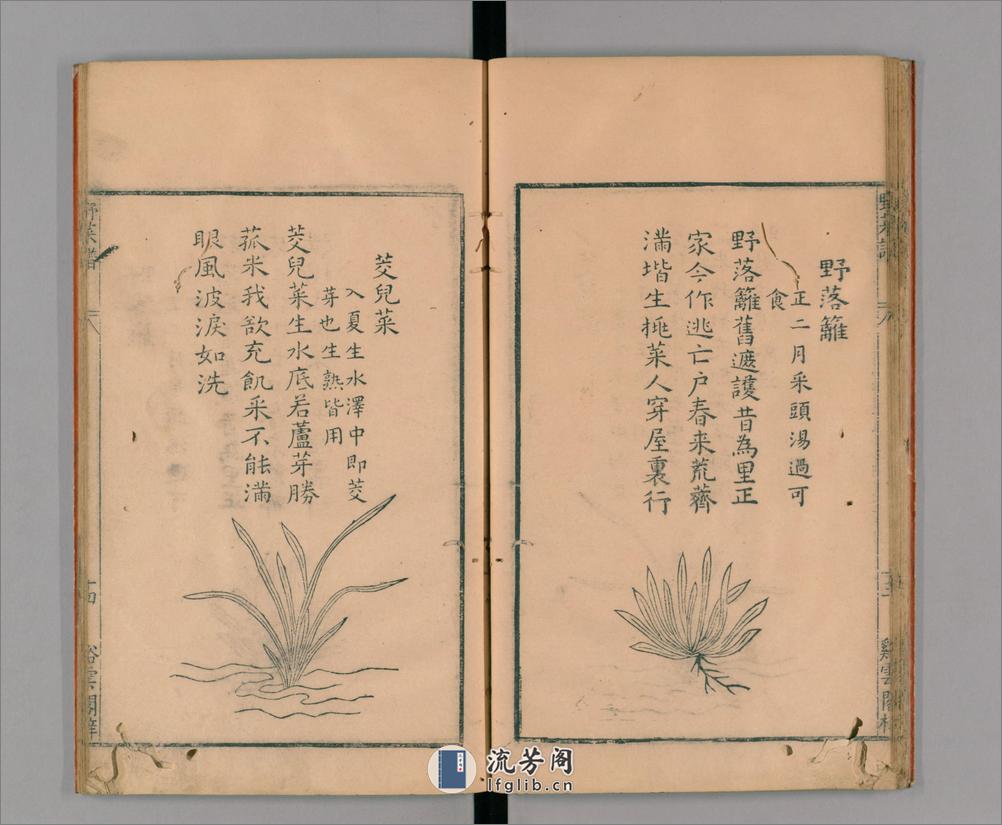 野落籬
正二月采頭湯過可
食
野落籬舊遮護昔為里正
家今作逃亡戶春来荒薺
滿堦生挑菜人穿屋裏行
茭兒菜
入夏生水澤中即茭
芽也生熟皆用
茭兒菜生水底若蘆芽勝
菰米我欲充飢采不能滿
眼風波淚如洗
野菜譜
八
十四
谿雲閣
流芳阁
lfglib.cn